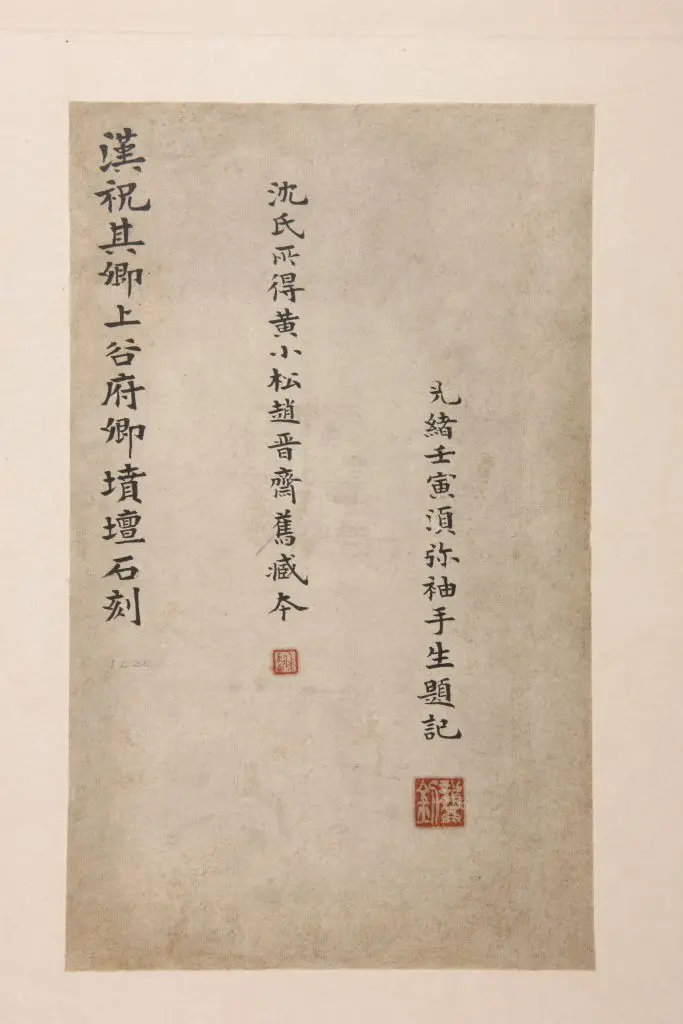 漢祝其卿上谷府卿墳壇石刻
沈氏所得黄小松趙晋齋舊臧本
光緒壬寅湏弥袖手生題記